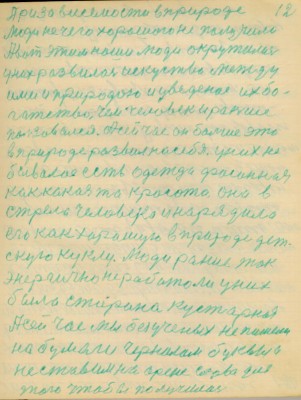 При зависемости в природе 12
люди нечего хорошего не получило
А вот этими наши люди окружилися
у них развилося искуство между
ими и природою и уведеное их бо-
гатство, чем человек и раньше
пользовался. А сейчас он больше это
в природе развил на себя. у них не
бывалое есть одежда фасонная
какканая то красота она в
стрела человека и нарядила
его как хорошую в празде дет-
скую куклу. Люди раньше так
энергично не работали у них
была старана кустарная
А сейчас мы безученых не пишем
на бумаги чернилам буквы и
не ставим на арене слова для
того чтобы получилас